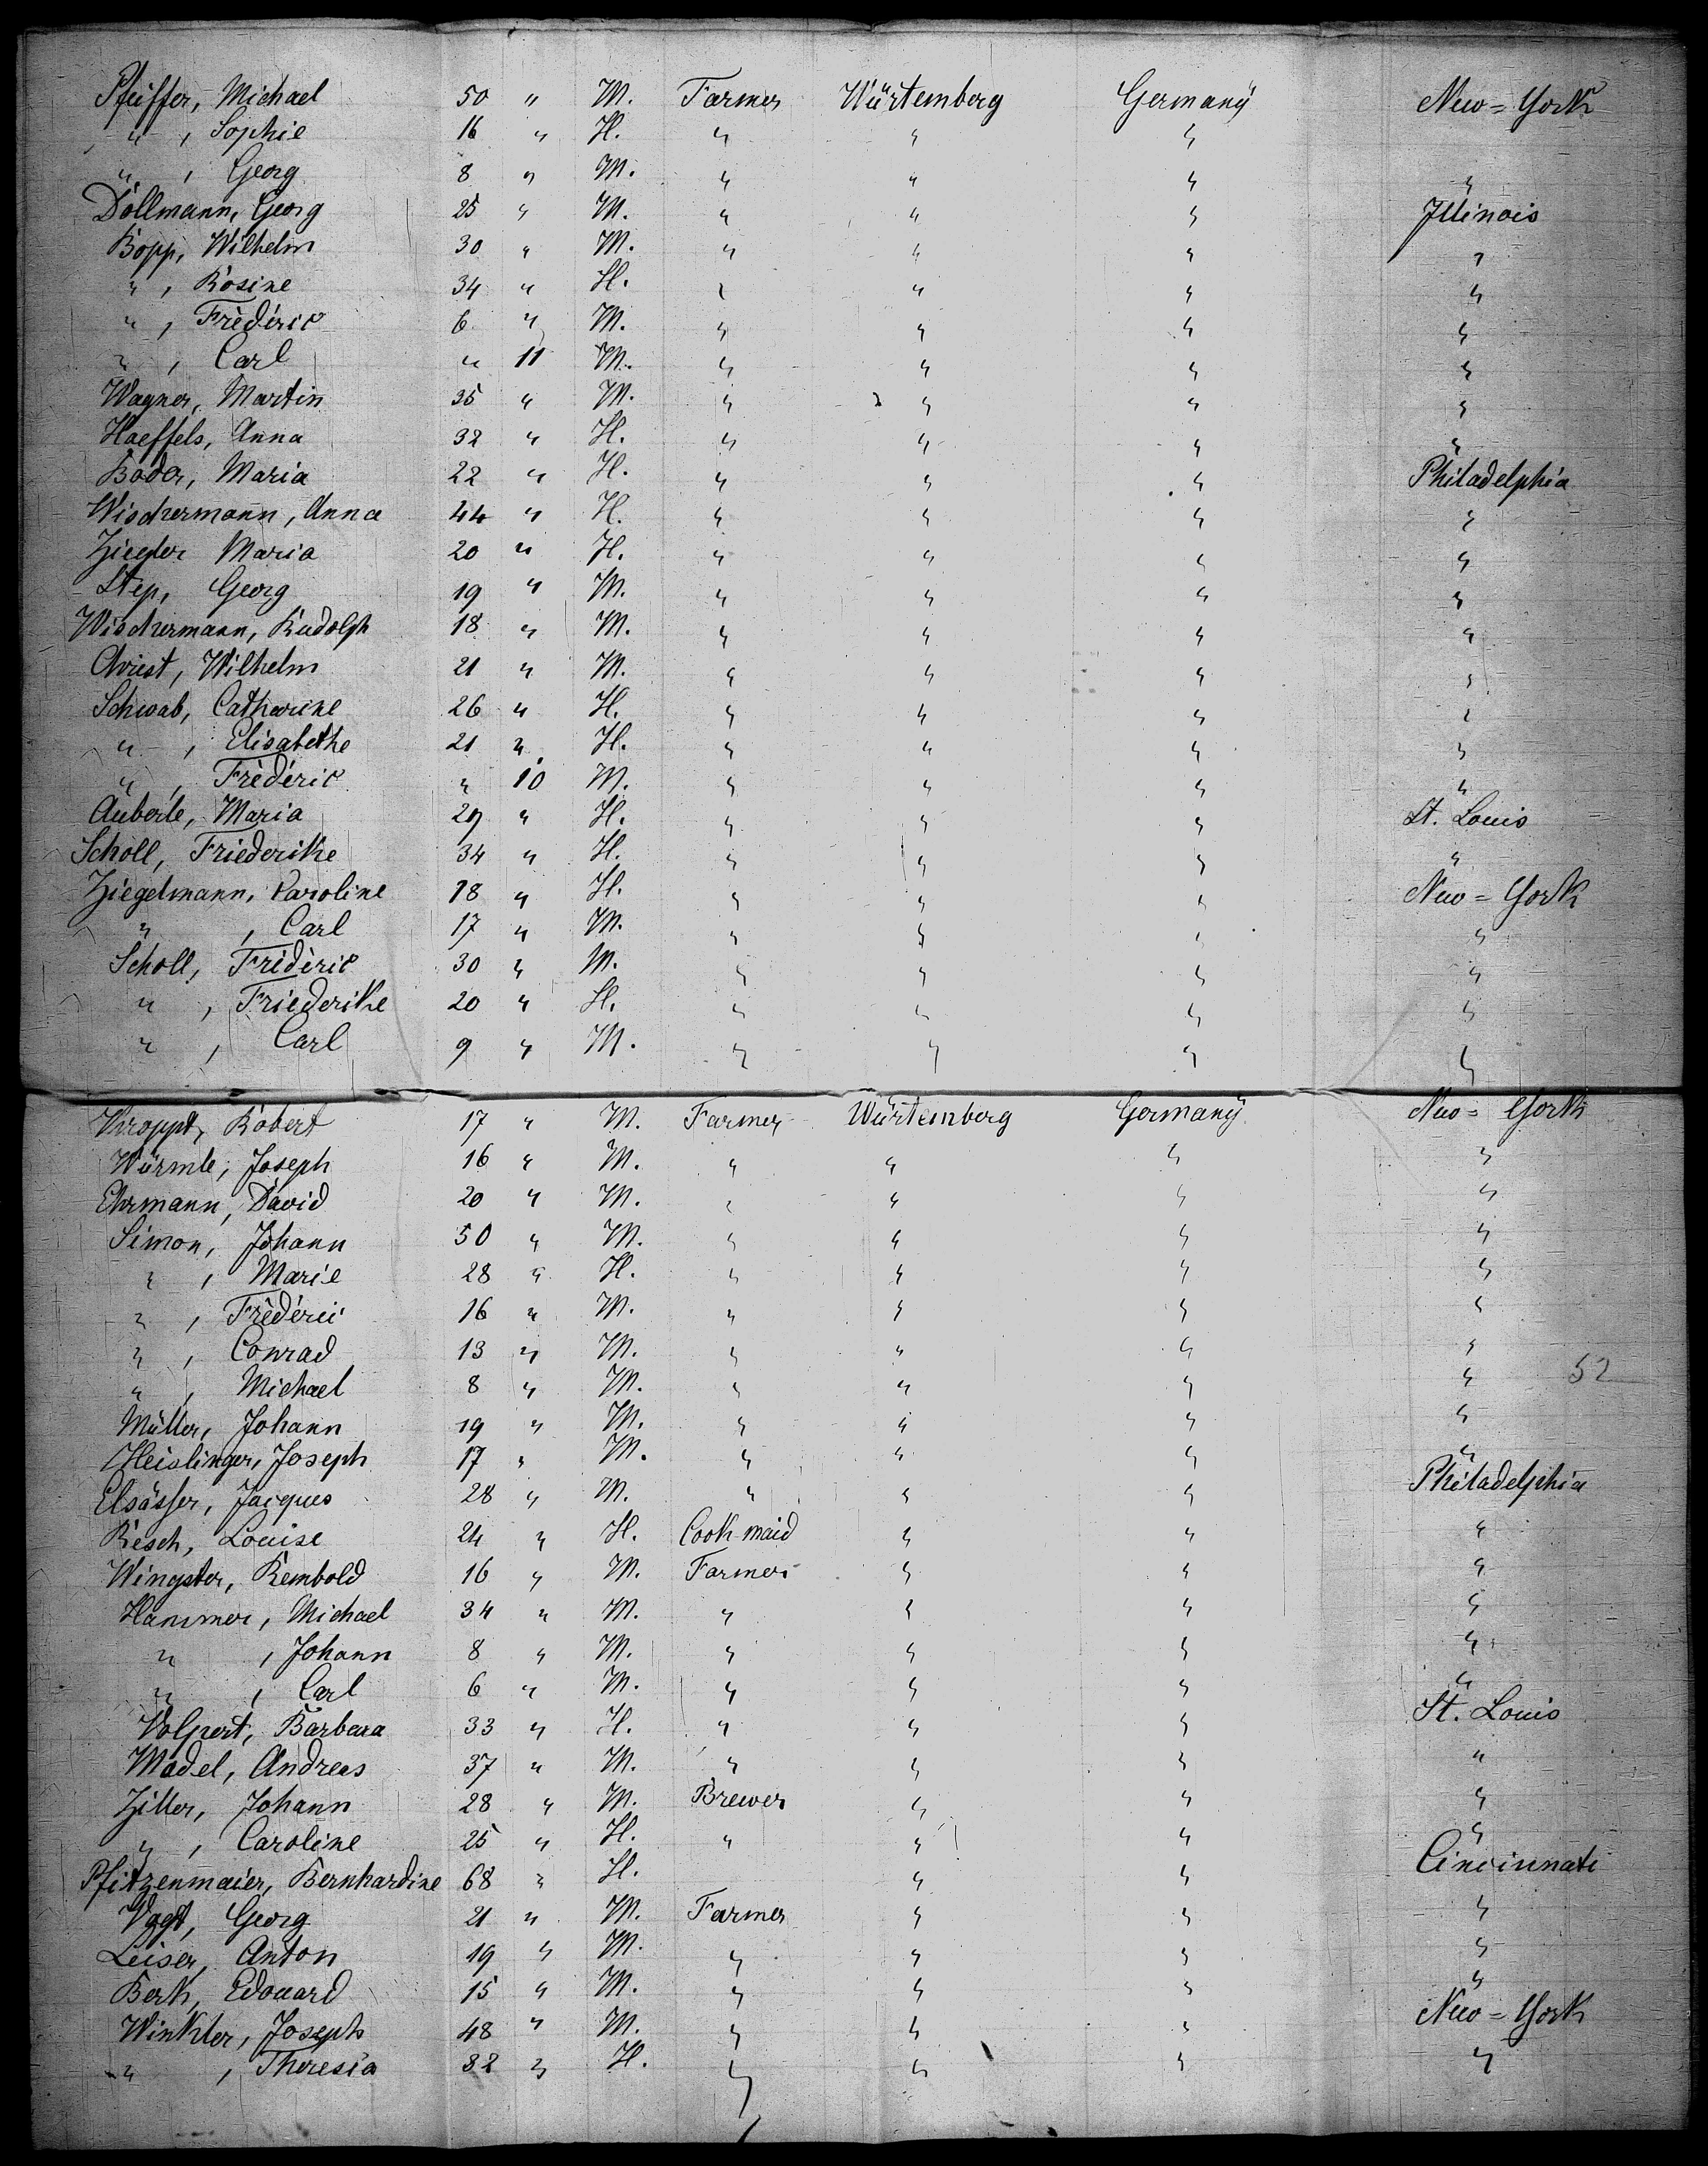 Pfeiffer, Michael 50 " M. Farmer Würtemberg Germany New=York
" , Sophie 16 " H. " " "
" , Georg 8 " M. " " " "
Döllmann, Georg 25 " M. " " " Illinois
Bopp, Wilhelm 30 " M. " " " "
" , Rosine 34 " H. " " " "
" , Fréderic 6 " M. " " " "
" , Carl " 11 M. " " " "
Wagner, Martin 35 " M. " " " "
Haeffels, Anna 32 " H. " " " "
Bader, Maria 22 " H. " " " Philadelphia
Wischermann, Anna 44 " H. " " " "
Ziegler Maria 20 " H. " " " "
Step, Georg 19 " M. " " " "
Wischermann, Rudolph 18 " M. " " " "
Christ, Wilhelm 21 " M. " " " "
Schwab, Catharine 26 " H. " " " "
" , Elisabethe 21 " H. " " " "
" , Fréderic " 10 M. " " " "
Äuberle, Maria 29 " H. " " " St. Louis
Scholl, Friederike 34 " H. " " " "
Ziegelmann, Caroline 18 " H. " " " New=York
" , Carl 17 " M. " " " "
Scholl, Fréderic 30 " M. " " " "
" , Friederike 20 " H. " " " "
" , Carl 9 " M. " " " "
Robert 17 " M. Farmer Würtemberg Germany New=York
Würmle, Joseph 16 " M. " " " "
Ehrmann, David 20 " M. " " " "
Simon, Johann 50 " M. " " " "
" , Marie 28 " H. " " " "
" , Fréderic 16 " M. " " " "
" , Conrad 13 " M. " " " "
" , Michael 8 " M. " " " " 52
Müller, Johann 19 " M. " " " "
Heislinger, Joseph 17 " M. " " " "
Elsässer, Jacques 28 " M. " " " Philadelphia
Resch, Louise 24 " H. Cook maid " " "
Wingster, Rembold 16 " M. Farmer " " "
Hammer, Michael 34 " M. " " " "
" , Johann 8 " M. " " " "
" , Carl 6 " M. " " " "
Volpert, Barbara 33 " H. " " " St. Louis
Madel, Andreas 37 " M. " " " "
Ziller, Johann 28 " M. Brewer " " "
" , Caroline 25 " H. " " " "
Pfitzenmaier, Bernhardine 68 " H. " " Cincinnati
Vogt, Georg 21 " M. Farmer " " "
Leiser, Anton 19 " M. " " " "
Berk, Edouard 15 " M. " " " "
Winkler, Joseph 48 " M. " " " New=York
" , Theresia 32 " H. " " " "